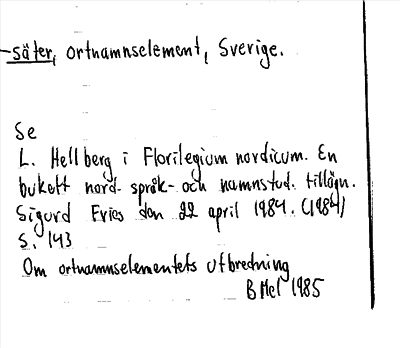 -säter, ortnamnselement, Sverige.
Se
L. Hellberg i Florilegium nordicum. En
bukett nord. språk- och namnstud. tillägn.
Sigurd Fries den 22 april 1984. (1984)
S. 143
Om ortnamnselementets utbredning
B Mel 1985